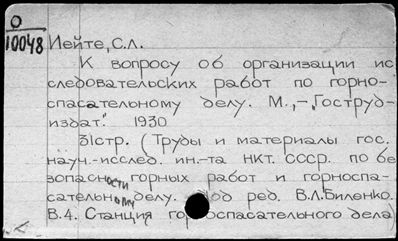 О
10048 Иейте, С.Л.
К вопросу об организации ис
следовательских работ по горно-
спасательному делу. М.,-„Гоструд-
издат." 1930
31стр. (Труды и материалы гос.
науч.-исслед. ин.-та НКТ. СССР. по бе
зопасности горных работ и горноспа-
сательному делу. Под ред. В.Л.Биленко.
В.4. Станция горноспасательного дела)